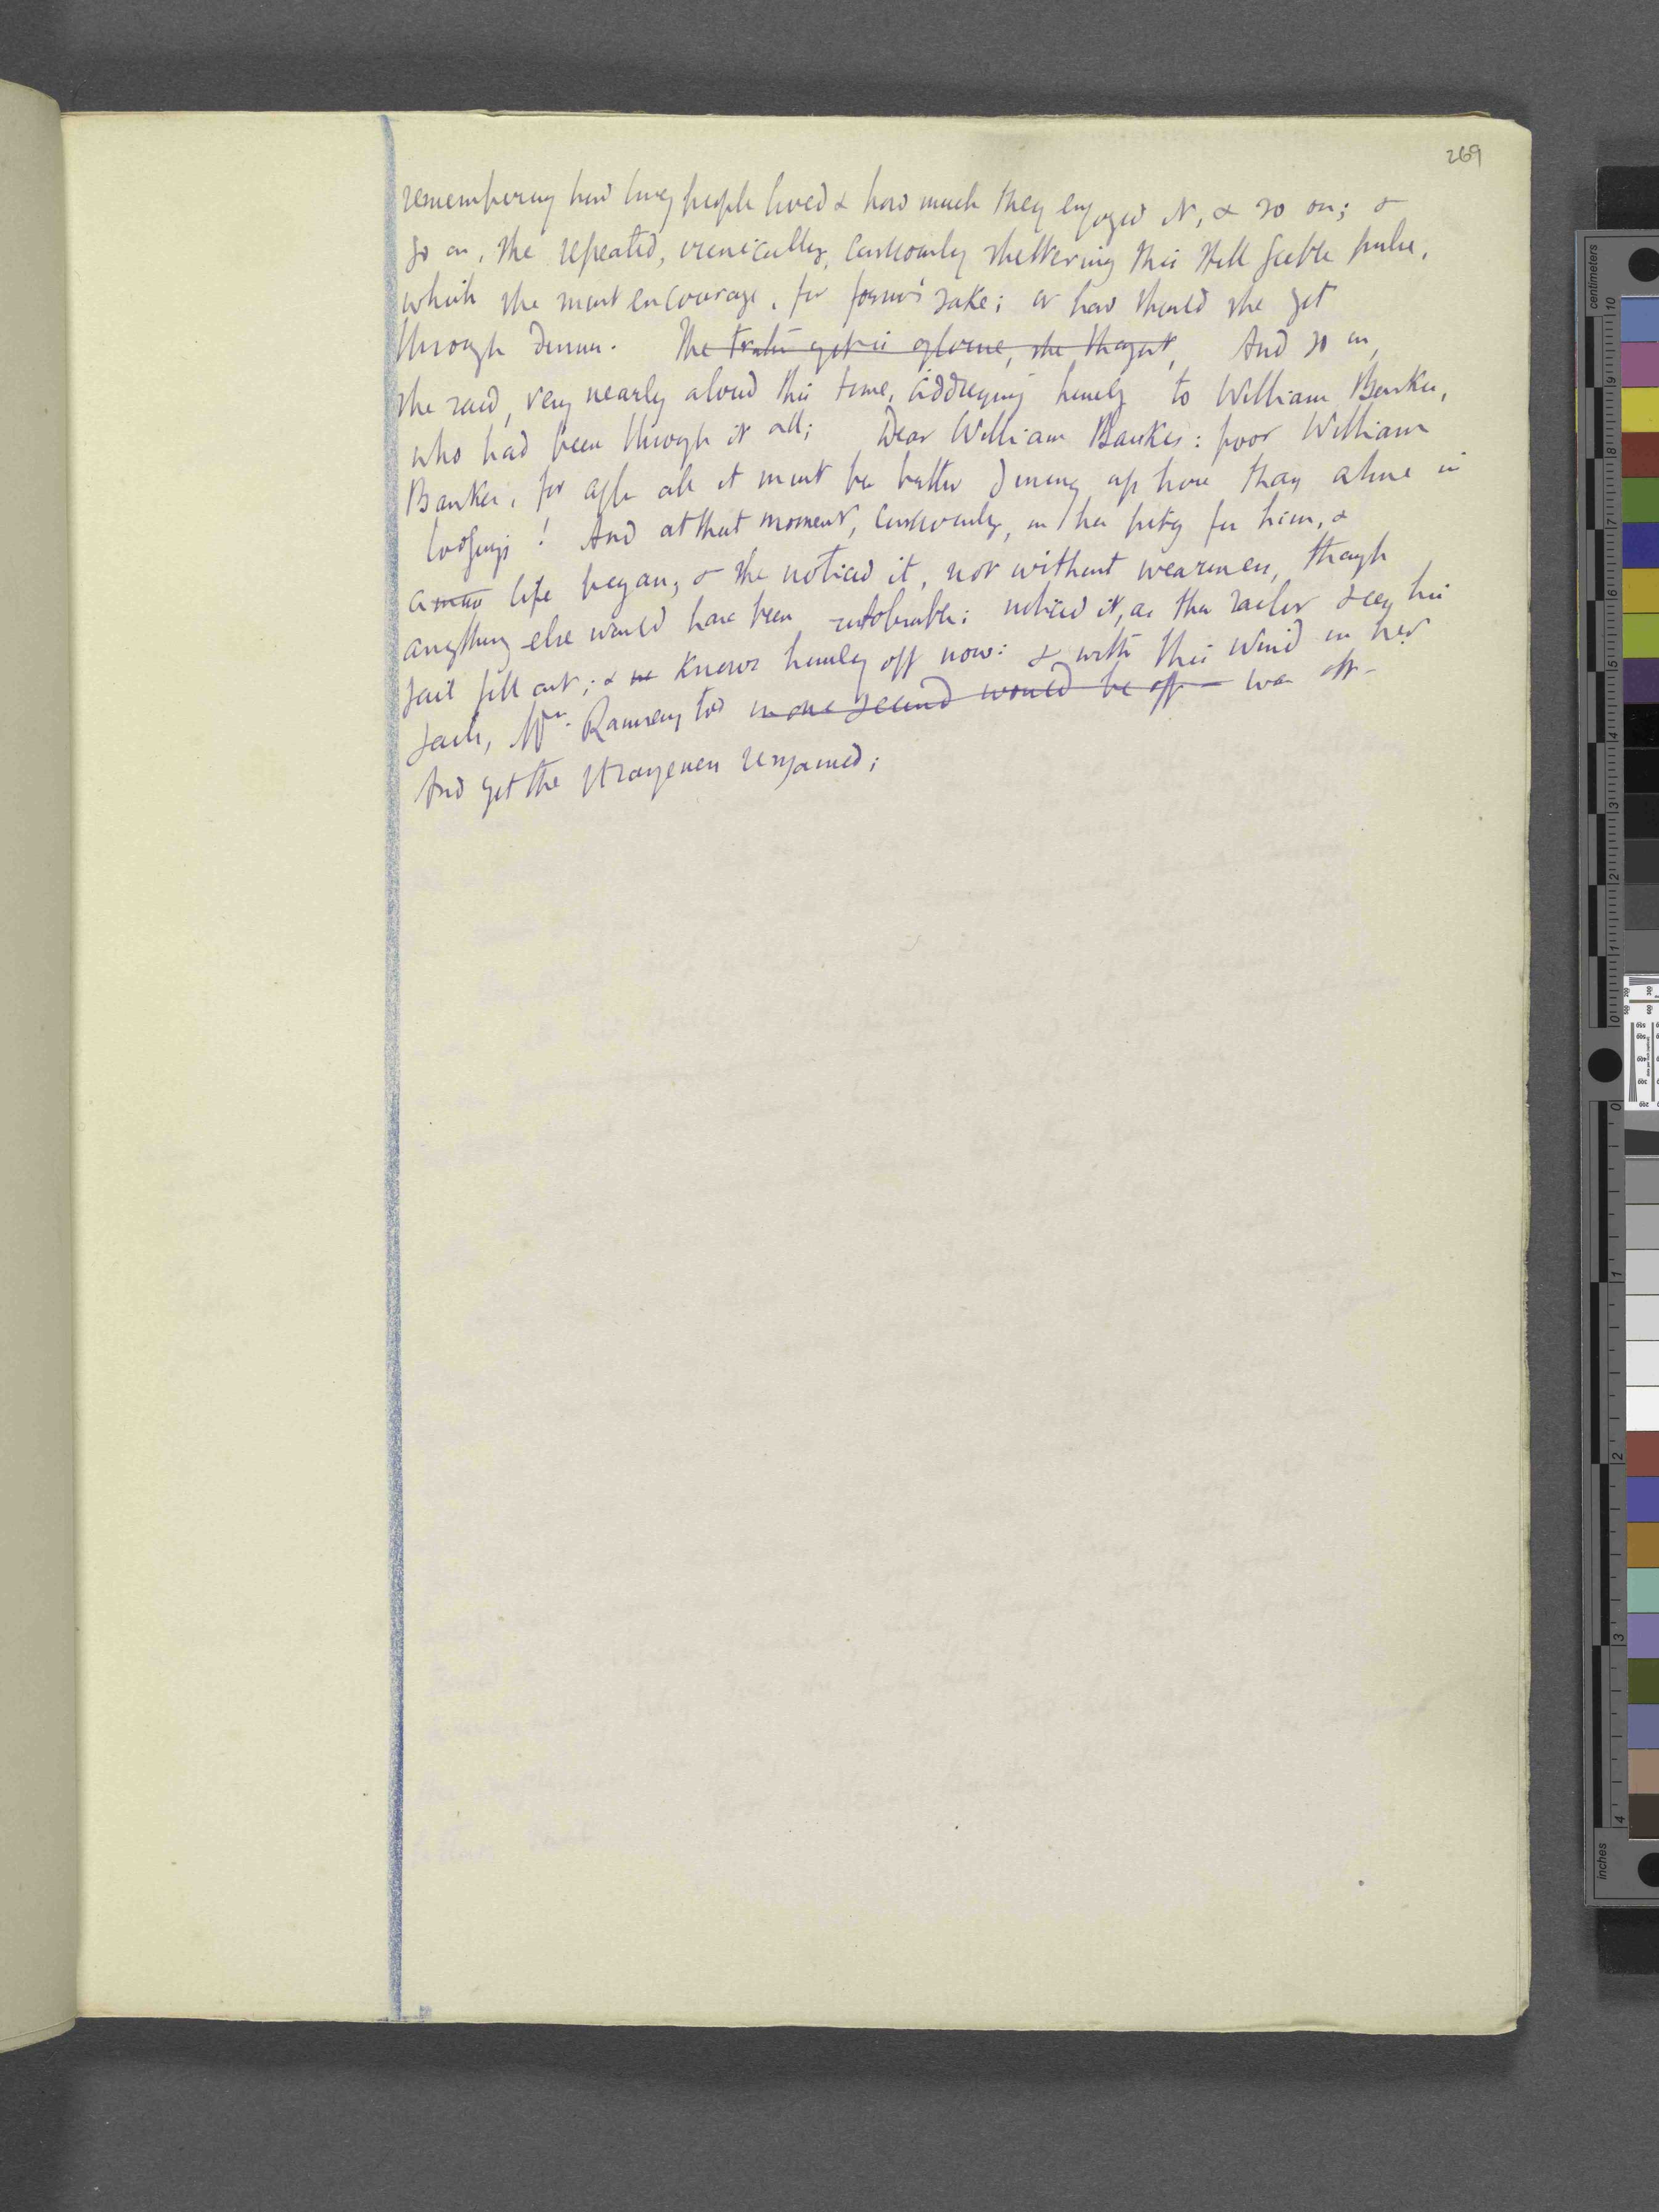 269
remembering how long people lived & how much they enjoyed it, & so on; &
so on, she repeated, ironically, cautiously sheltering this still feeble pulse,
which she must encourage, for form's sake; or how should she get
through dinner. The truth yet is of course, she thought, And so on,
she said, very nearly aloud this time, addressing herself to William Bankes,
who had been through it all; Dear William Bankes: poor William
Bankes, for after all it must be better dining up here than alone in
lodgings! And at that moment, curiously, in her pity for him, &
a life began, & she noticed it, not without weariness, though
anything else would have been intolerable: noticed it, as the sailor sees his
sail fill out; & knows himself off now: & with this wind in her
sails, Mrs. Ramsay too in one second would be off — was off —
And yet the strangeness remained;
centimeters
inches